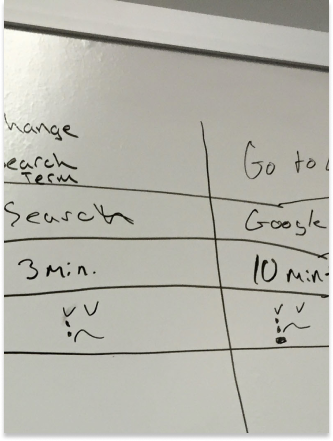 hange
earch
Term
Go to
Search
Google
3 min.
10 min